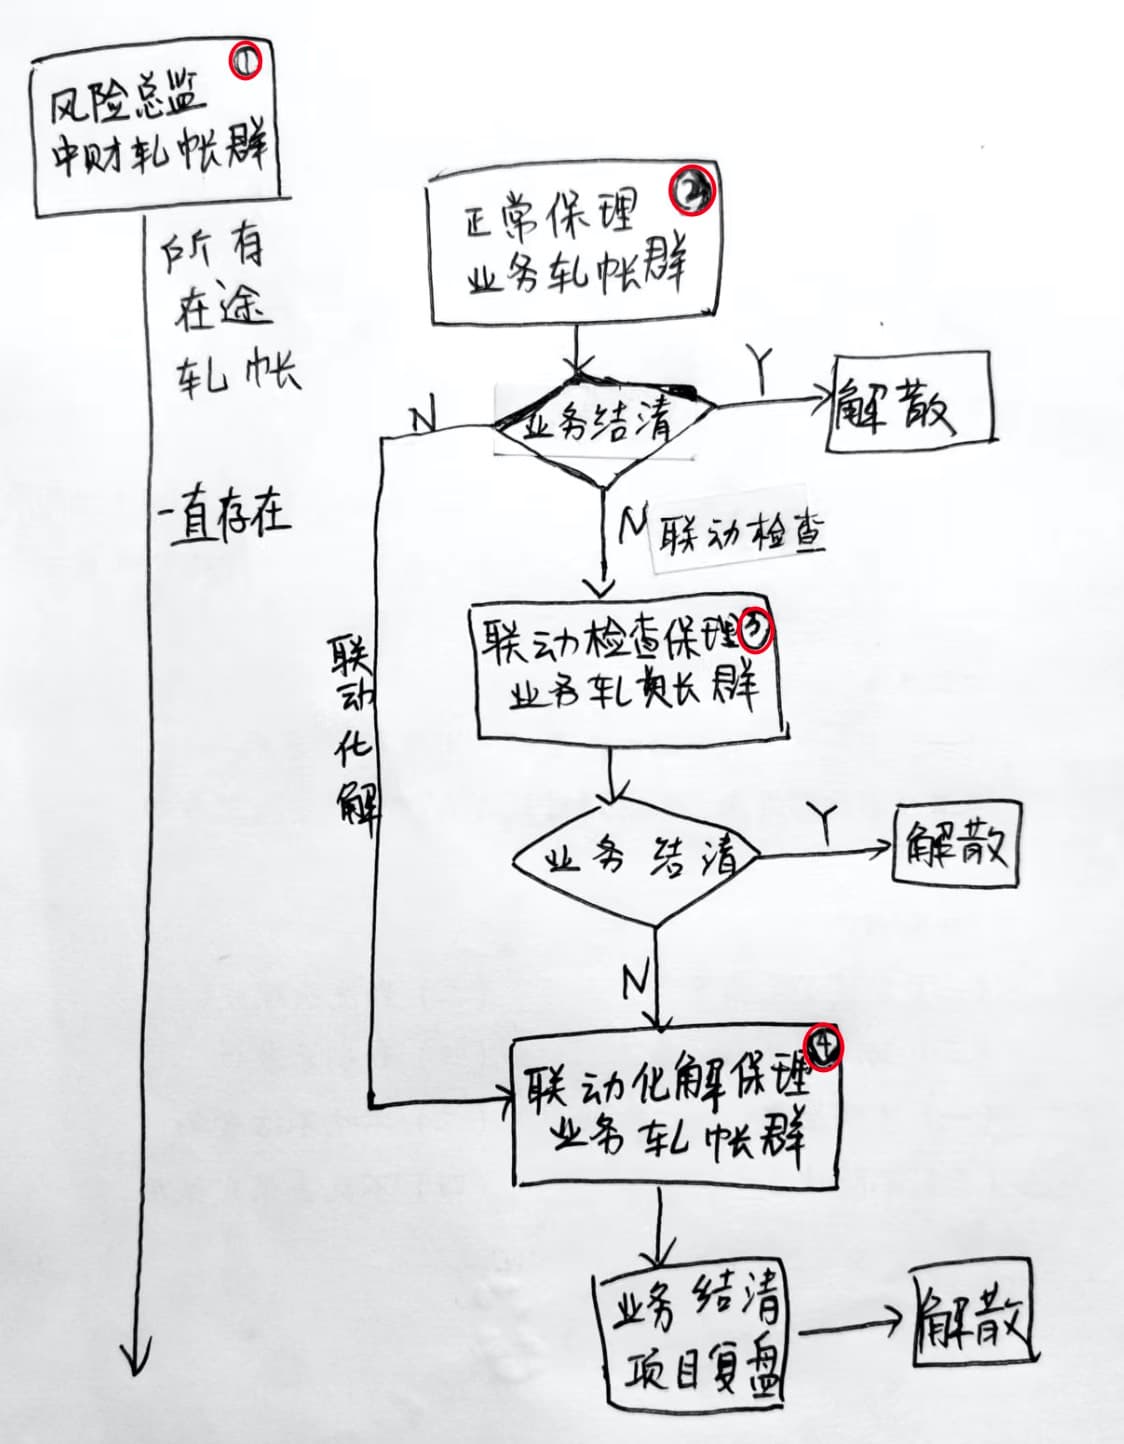 ①
风险总监
中财轧帐群
所有
在途
轧帐
一直存在
②
正常保理
业务轧帐群
业务结清
Y
解散
N
N
联动检查
联动化解
③
联动检查保理
业务轧账群
业务结清
Y
解散
N
④
联动化解保理
业务轧帐群
业务结清
项目复盘
解散